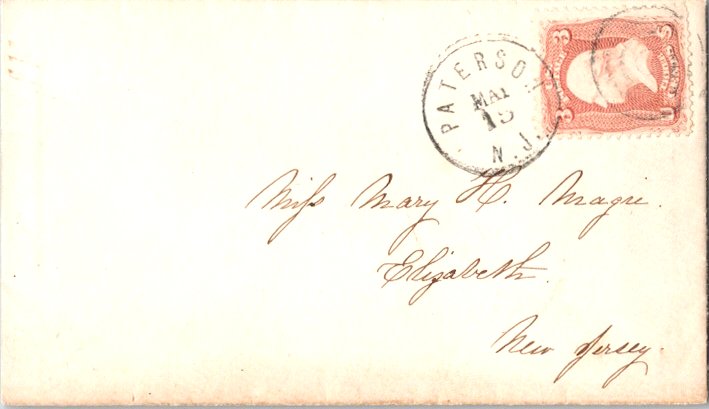 PATERSON
MAY
15
N.J.
3 3
U S
Miss Mary H. Magie.
Elizabeth.
New Jersey.